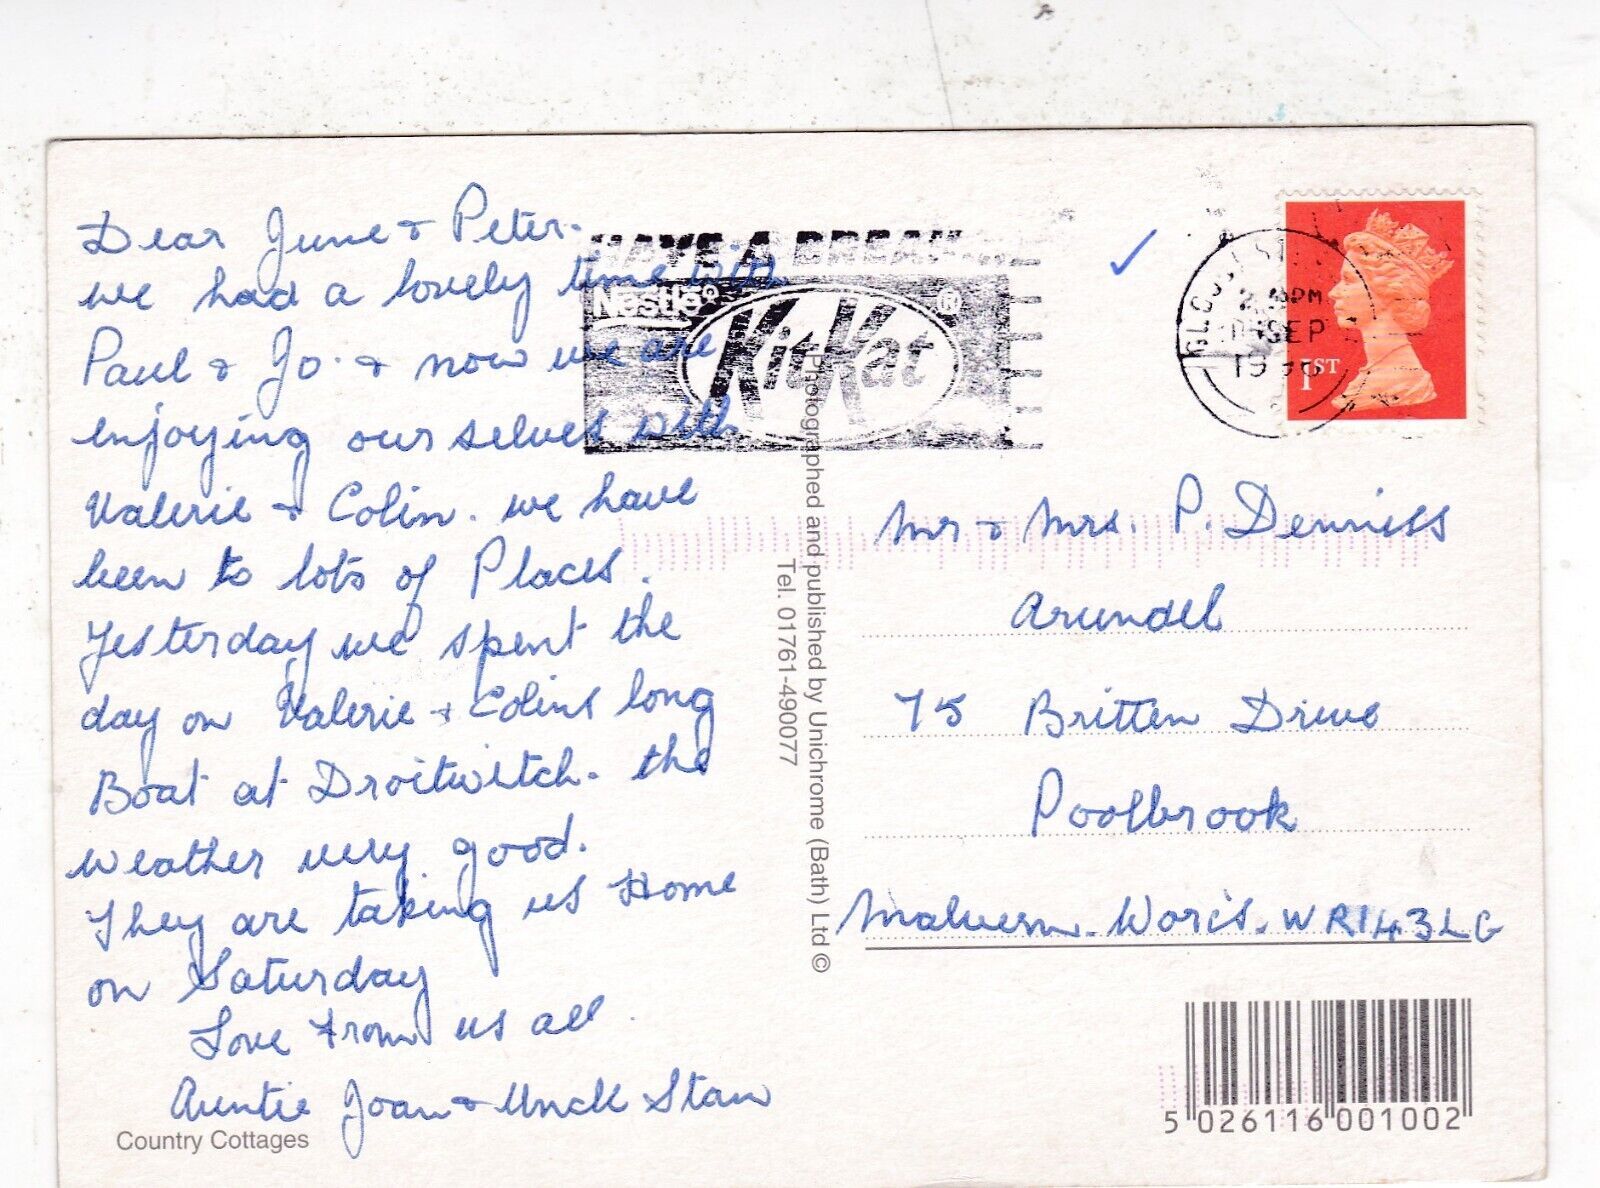 Dear June & Peter.
we had a lovely time with
Paul & Jo. & now we are
enjoying our selves with
Valerie & Colin. we have
been to lots of Places.
Yesterday we spent the
day on Valerie & Colins long
Boat at Droitwitch. the
weather very good.
They are taking us Home
on Saturday
Love From us all.
Auntie Joan & Uncle Stan
Country Cottages
HAVE A BREAK
Nestlé®
KitKat ®
Photographed and published by Unichrome (Bath) Ltd ©
Tel. 01761-490077
PM
SEP
1996
1ST
Mr & Mrs. P. Denniss
Arundel
75 Britten Drive
Poolbrook
Malvern. Worcs. WR143LG
5 026116 001002